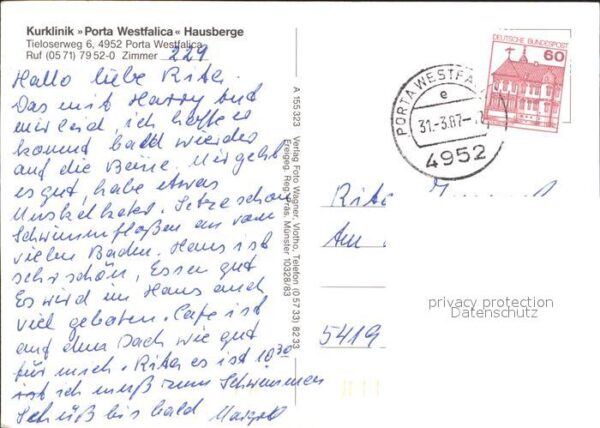 Kurklinik »Porta Westfalica« Hausberge
Tieloserweg 6, 4952 Porta Westfalica
Ruf (05 71) 79 52-0 Zimmer 229
Hallo liebe Rita.
Das mit Harry tut
mir leid ich hoffe es
kommt bald wieder
auf die Beine. Mir geht
es gut, habe etwas
Muskelkater.
Schwimmflossen an vom
vielen Baden. Haus ist
sehr schön, Essen gut
Es wird im Haus auch
viel geboten. Cafe ist
auf dem Dach wie gut
für mich. Rita es ist 10 30
ich muß zum Schwimmen
bis bald Margret
A 155 323 Verlag Foto Wagner, Vlotho, Telefon (0 57 33) 82 33
Freigeg. Reg. Präs. Münster 10328/83
DEUTSCHE BUNDESPOST
60
PORTA WESTFA
e
31.-3.87-
4952
Rita
Am
5419
privacy protection
Datenschutz